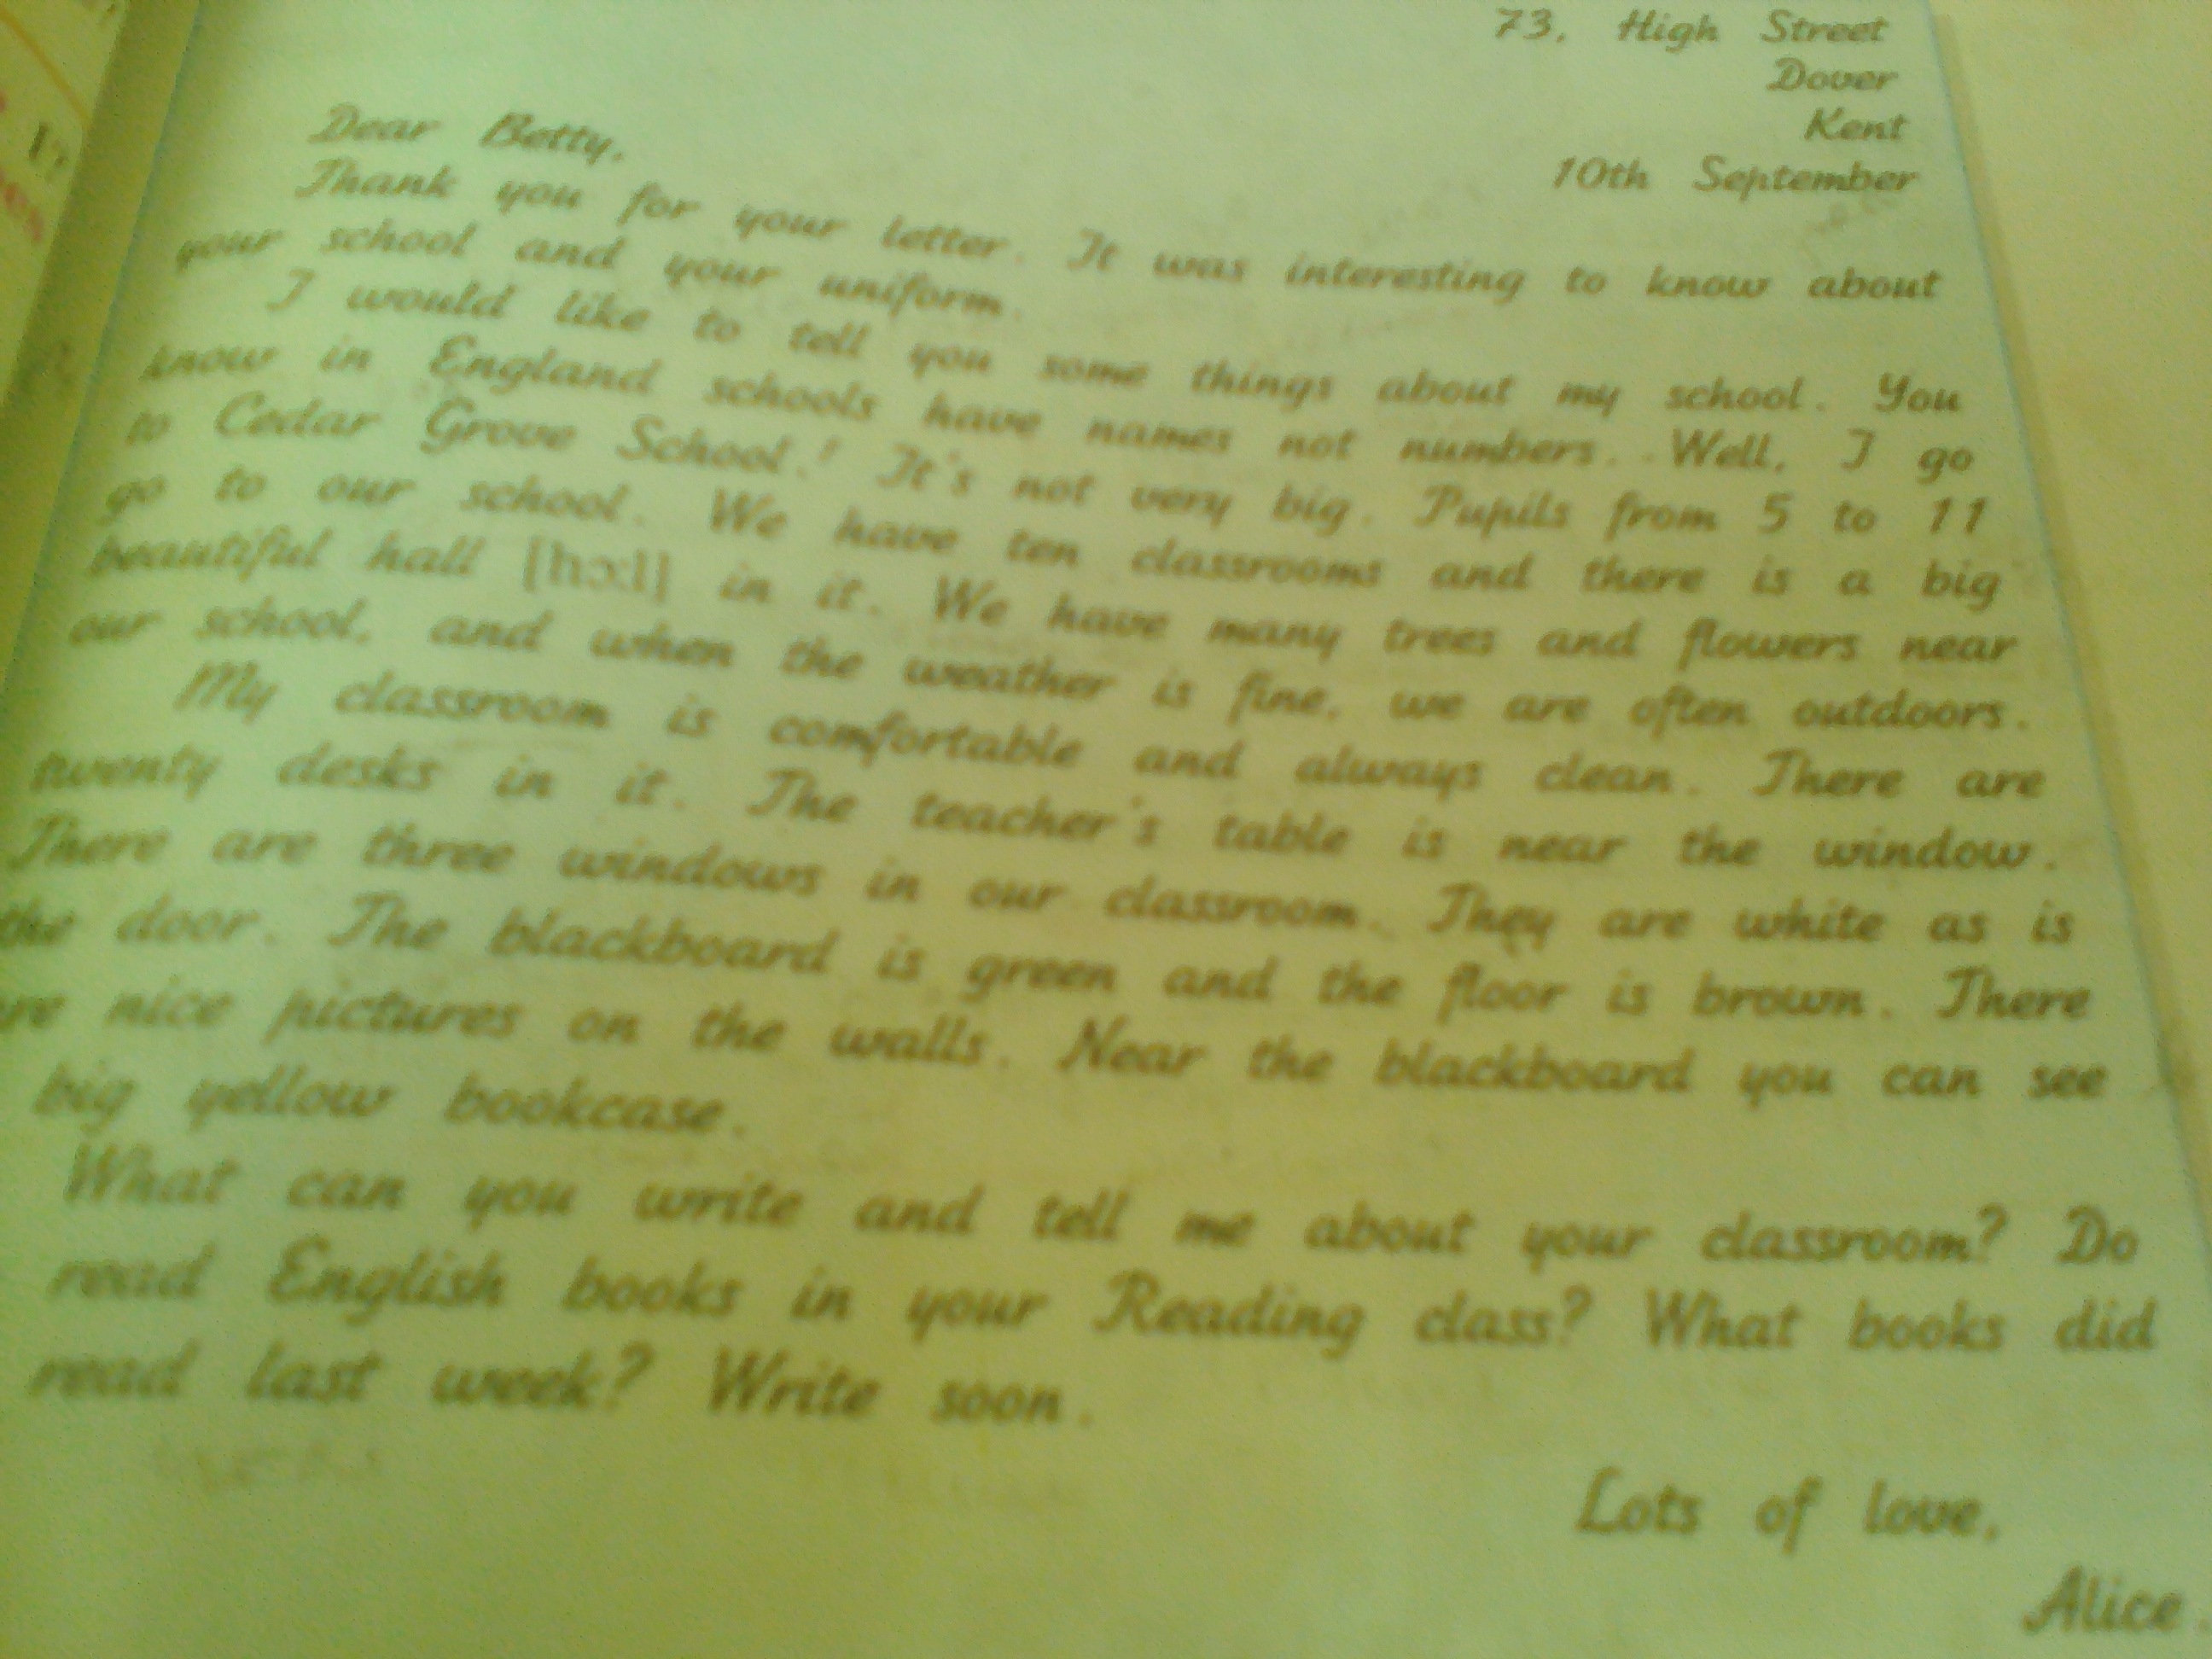 73, High Street
Dover
Kent
10th September
Dear Betty,
Thank you for your letter. It was interesting to know about
your school and your uniform.
I would like to tell you some things about my school. You
know in England schools have names not numbers. Well, I go
to Cedar Grove School! It's not very big. Pupils from 5 to 11
go to our school. We have ten classrooms and there is a big
beautiful hall [hɔ:l] in it. We have many trees and flowers near
our school, and when the weather is fine, we are often outdoors.
My classroom is comfortable and always clean. There are
twenty desks in it. The teacher's table is near the window.
There are three windows in our classroom. They are white as is
the door. The blackboard is green and the floor is brown. There
re nice pictures on the walls. Near the blackboard you can see
big yellow bookcase.
What can you write and tell me about your classroom? Do
read English books in your Reading class? What books did
read last week? Write soon.
Lots of love,
Alice.